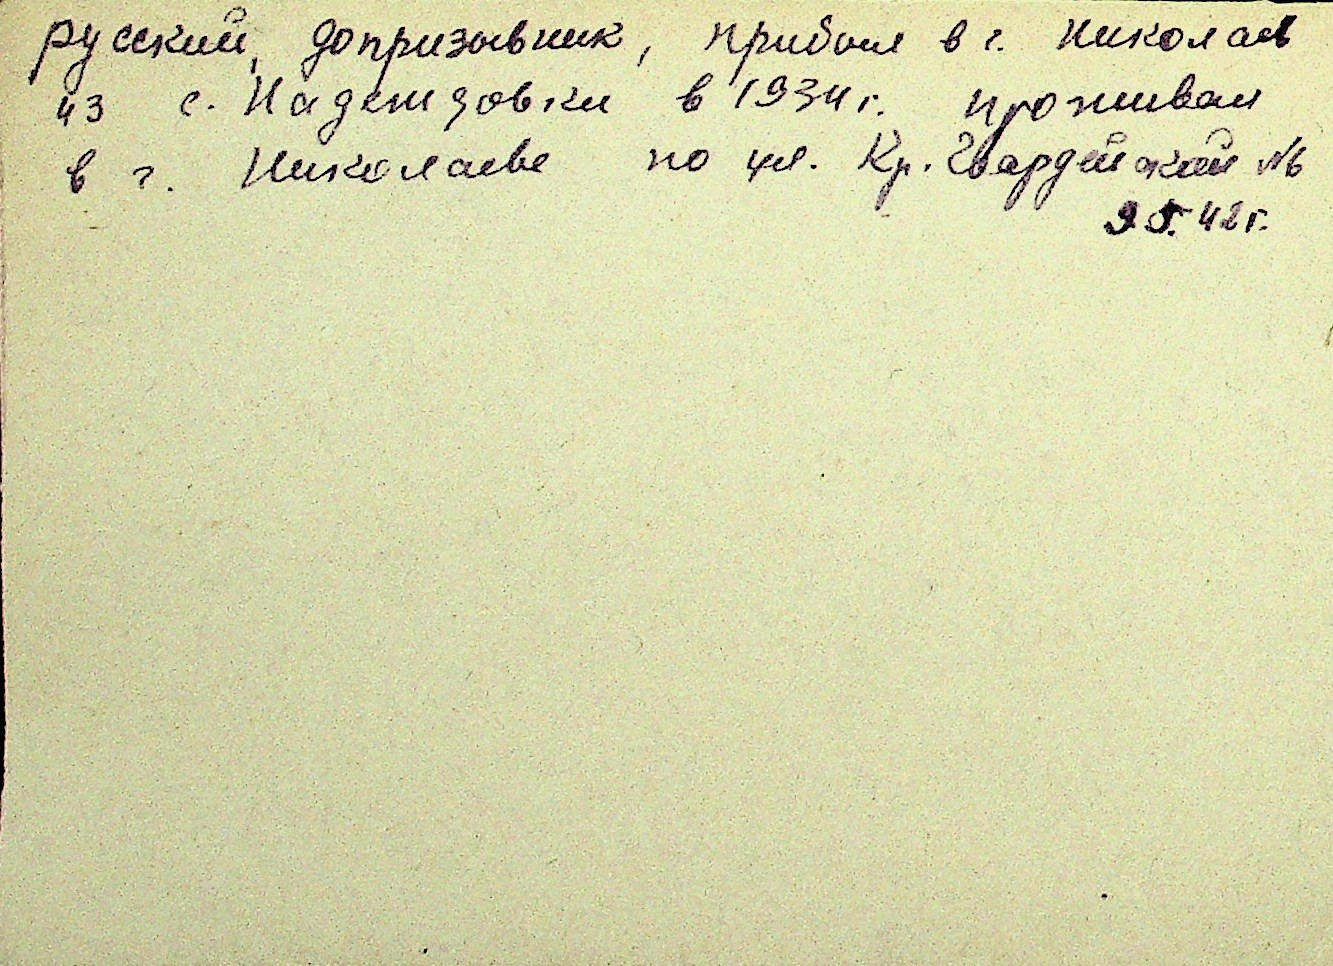 русский, допризывник, прибыл в г. Николаев
из с. Надеждовки в 1934 г. проживал
в г. Николаеве по ул. Кр. Гвардейской №6
9 5. 42 г.